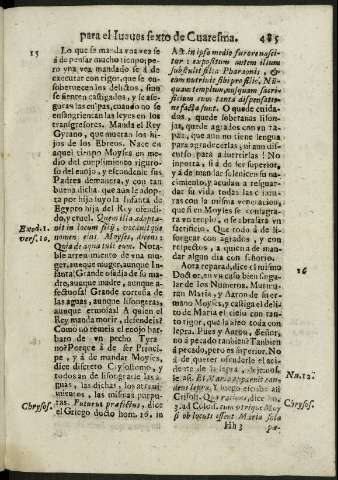 para el Iueues sexto de Cuaresma. 485
15
Lo que se manda vna vez se
á de pensar mucho tiempo; pe-
ro vna vez mandado se á de
executar con rigor, que se en-
sobervecen los delictos, sino
se sienten castigados, y se ase-
guran las culpas, cuando no se
ensangrientan las leyes en los
transgresores. Manda el Rey
Gytano, que mueran los hi-
jos de los Ebreos. Nace en
aquel tiempo Moyses en me-
dio del cumplimiento riguro-
so del enojo, y escondenle sus
Padres demanera, y con tan
buena dicha que aun le adop-
ta por hijo suyo la Infanta de
Egypto hija del Rey ofendi-
do, y cruel. Quem illa adopta-
Exod. 1.
vers. 10.
uit in locum filij, vocauit que
nomen eius Moyses, dicens:
Quia de aqua tuli eum. Nota-
ble atreuimiento de vna mu-
ger, aunque muger, aunque In-
fanta! Grande osadia de su ma-
dre, aunque madre, aunque a-
fectuosa! Grande cortesia de
las aguas, aunque lisongeras,
aunque
Rey manda morir, defiendeis?
Como no temeis el enojo bar-
baro de vn pecho Tyra-
no? Porque á de ser Princi-
pe, y á de mandar Moyses,
dice discreto Crysostomo, y
todos an de lisongearle las a-
guas, las dichas, los atreui-
mientos, las mismas purpu-
Chrysos.
ras. Futurus praefectus, dice
el Griego docto hom. 16. in
Act. in ipso medio furore nasci-
tur: expositum autem illum
sustulit filia Pharaonis, &
eum nutriuit sibi pro filio. Nu-
quam templum, nusquam sacri-
ficium cum tanta dispensatio-
ne facta sunt. O quede cuida-
dos, quede soberanas lison-
jas, quede agrados con vn ta-
paz, que aun no tiene lengua
para agradecerlas, ni aun dis-
cursos para aduertirlas! No
inporta, si á de ser superior,
y á de mandar soliciten su na-
cimiento, acudan a resguar-
dar su vida todas las caricias
con la misma veneracion,
que si en Moyses se consagra-
ra vn templo, o se abrasara vn
sacrificio. Que todo á de
lisongear con agrados, y con
respectos, á quien á de man-
dar algun dia con señorio.
16
Aora repara d, dice el mismo
Doctor, en vn caso bien singu-
lar de los Numeros. Murmu-
ran Maria, y Aaron de su er-
mano Moyses, y castiga el delito
de Maria el cielo con tan-
to rigor, que la âreo toda con
lepra. Pues y Aaron, Señor,
no á pecado tambien? Tambien
á pecado, pero es superior. No
á de querer ofenderle el acci-
dente de la lepra, sino de-
Nu. 12.
le as. Et Maria apparuit can-
dens lepra. Y luego Crisos-
Crisost. Qua ratione, dice ho.
Chrysos.
3. ad Coloss. cum vtrique Moy-
si obloquuti essent Maria sola
Hh 3 pœ-